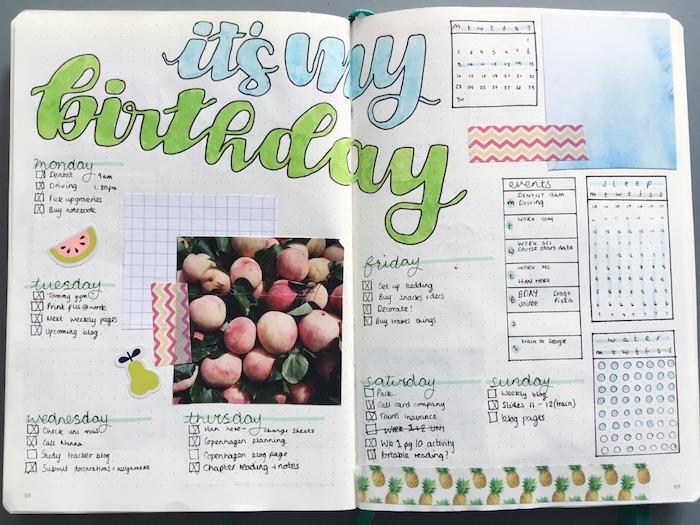 it's my
birthday
m t w t f s s
1
2 3 4 5 6 7 8
9 10 11 12 13 14 15
23
30
monday
Dentist 9am
Driving 1.30pm
Pick up groceries
Buy notebook
tuesday
Tommy gym
Print pics @ work
Next weekly pages
Upcoming blog
wednesday
Check uni mail
Call Nanna
Study tracker blog
Submit declarations + assignment
thursday
Han here - change sheets
Copenhagen planning
Copenhagen blog page
Chapter reading + notes
88
friday
Set up bedding
Buy snacks + decs
Decorate!
Buy travel things
saturday
Pack
Call card company
Travel insurance
Week 1+2 Uni
Wk 1 pg 10 activity
Portable reading?
sunday
Weekly blog
Slides 11-12 (train)
Blog pages
events
m DENTIST 9am
Driving
t WORK COM
w WORK SCI
Course start date
t WORK MC
HAN HERE
f BDAY
Pizza
s
s train to Georgie
sleep
m t w t f s s
water
m t w t f s s
89